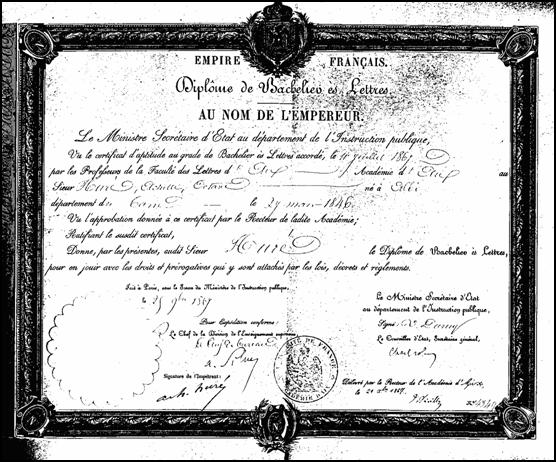 EMPIRE FRANÇAIS.
Diplôme de Bachelier ès Lettres.
AU NOM DE L'EMPEREUR.
Le Ministre Secrétaire d'Etat au département de l'Instruction publique,
Vu le certificat d'aptitude au grade de Bachelier ès Lettres accordé, le juillet 1867
par les Professeurs de la Faculté des Lettres d'Aix Académie d'Aix au
Sieur Huré né à Albi
département du Tarn le 27 mars 1846
Vu l'approbation donnée à ce certificat par le Recteur de ladite Académie;
Ratifiant le susdit certificat,
Donne, par les présentes, audit Sieur Huré le Diplôme de Bachelier ès Lettres,
pour en jouir avec les droits et prérogatives qui y sont attachés par les lois, décrets et règlements.
Fait à Paris, sous le Sceau du Ministère de l'Instruction publique,
le 25 9bre 1867
Pour Expédition conforme:
Le Chef de la Division de l'Enseignement supérieur
Signature de l'Impétrant:
Ach. Huré
Le Ministre Secrétaire d'Etat
au département de l'Instruction publique,
Signé: V. Duruy
Le Conseiller d'Etat, Secrétaire général,
Délivré par le Recteur de l'Académie d'Aix
le 1867.